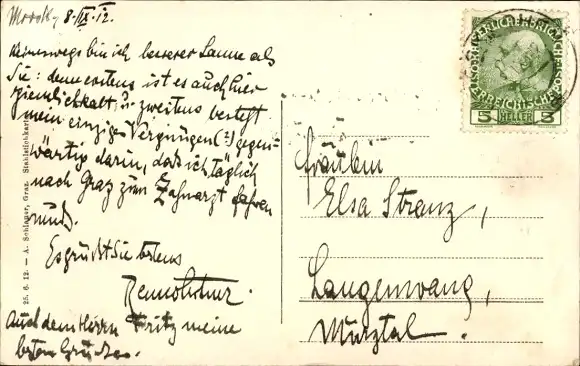 8./IX. 12.
Keineswegs bin ich besserer Laune als
Sie: denn erstens ist es auch hier
ziemlich kalt, u. zweitens besteht
mein einziges Vergnügen (?) gegen=
wärtig darin, daß ich täglich
nach Graz zum Zahnarzt fahren
muß.
Es grüßt Sie bestens
Auch dem Herrn
Fritz meine
besten Grüße.
25. 6. 12. — A. Schlager, Graz.
Fräulein
Elsa Stranz,
Langenwang,
Mürztal.
5 HELLER 5